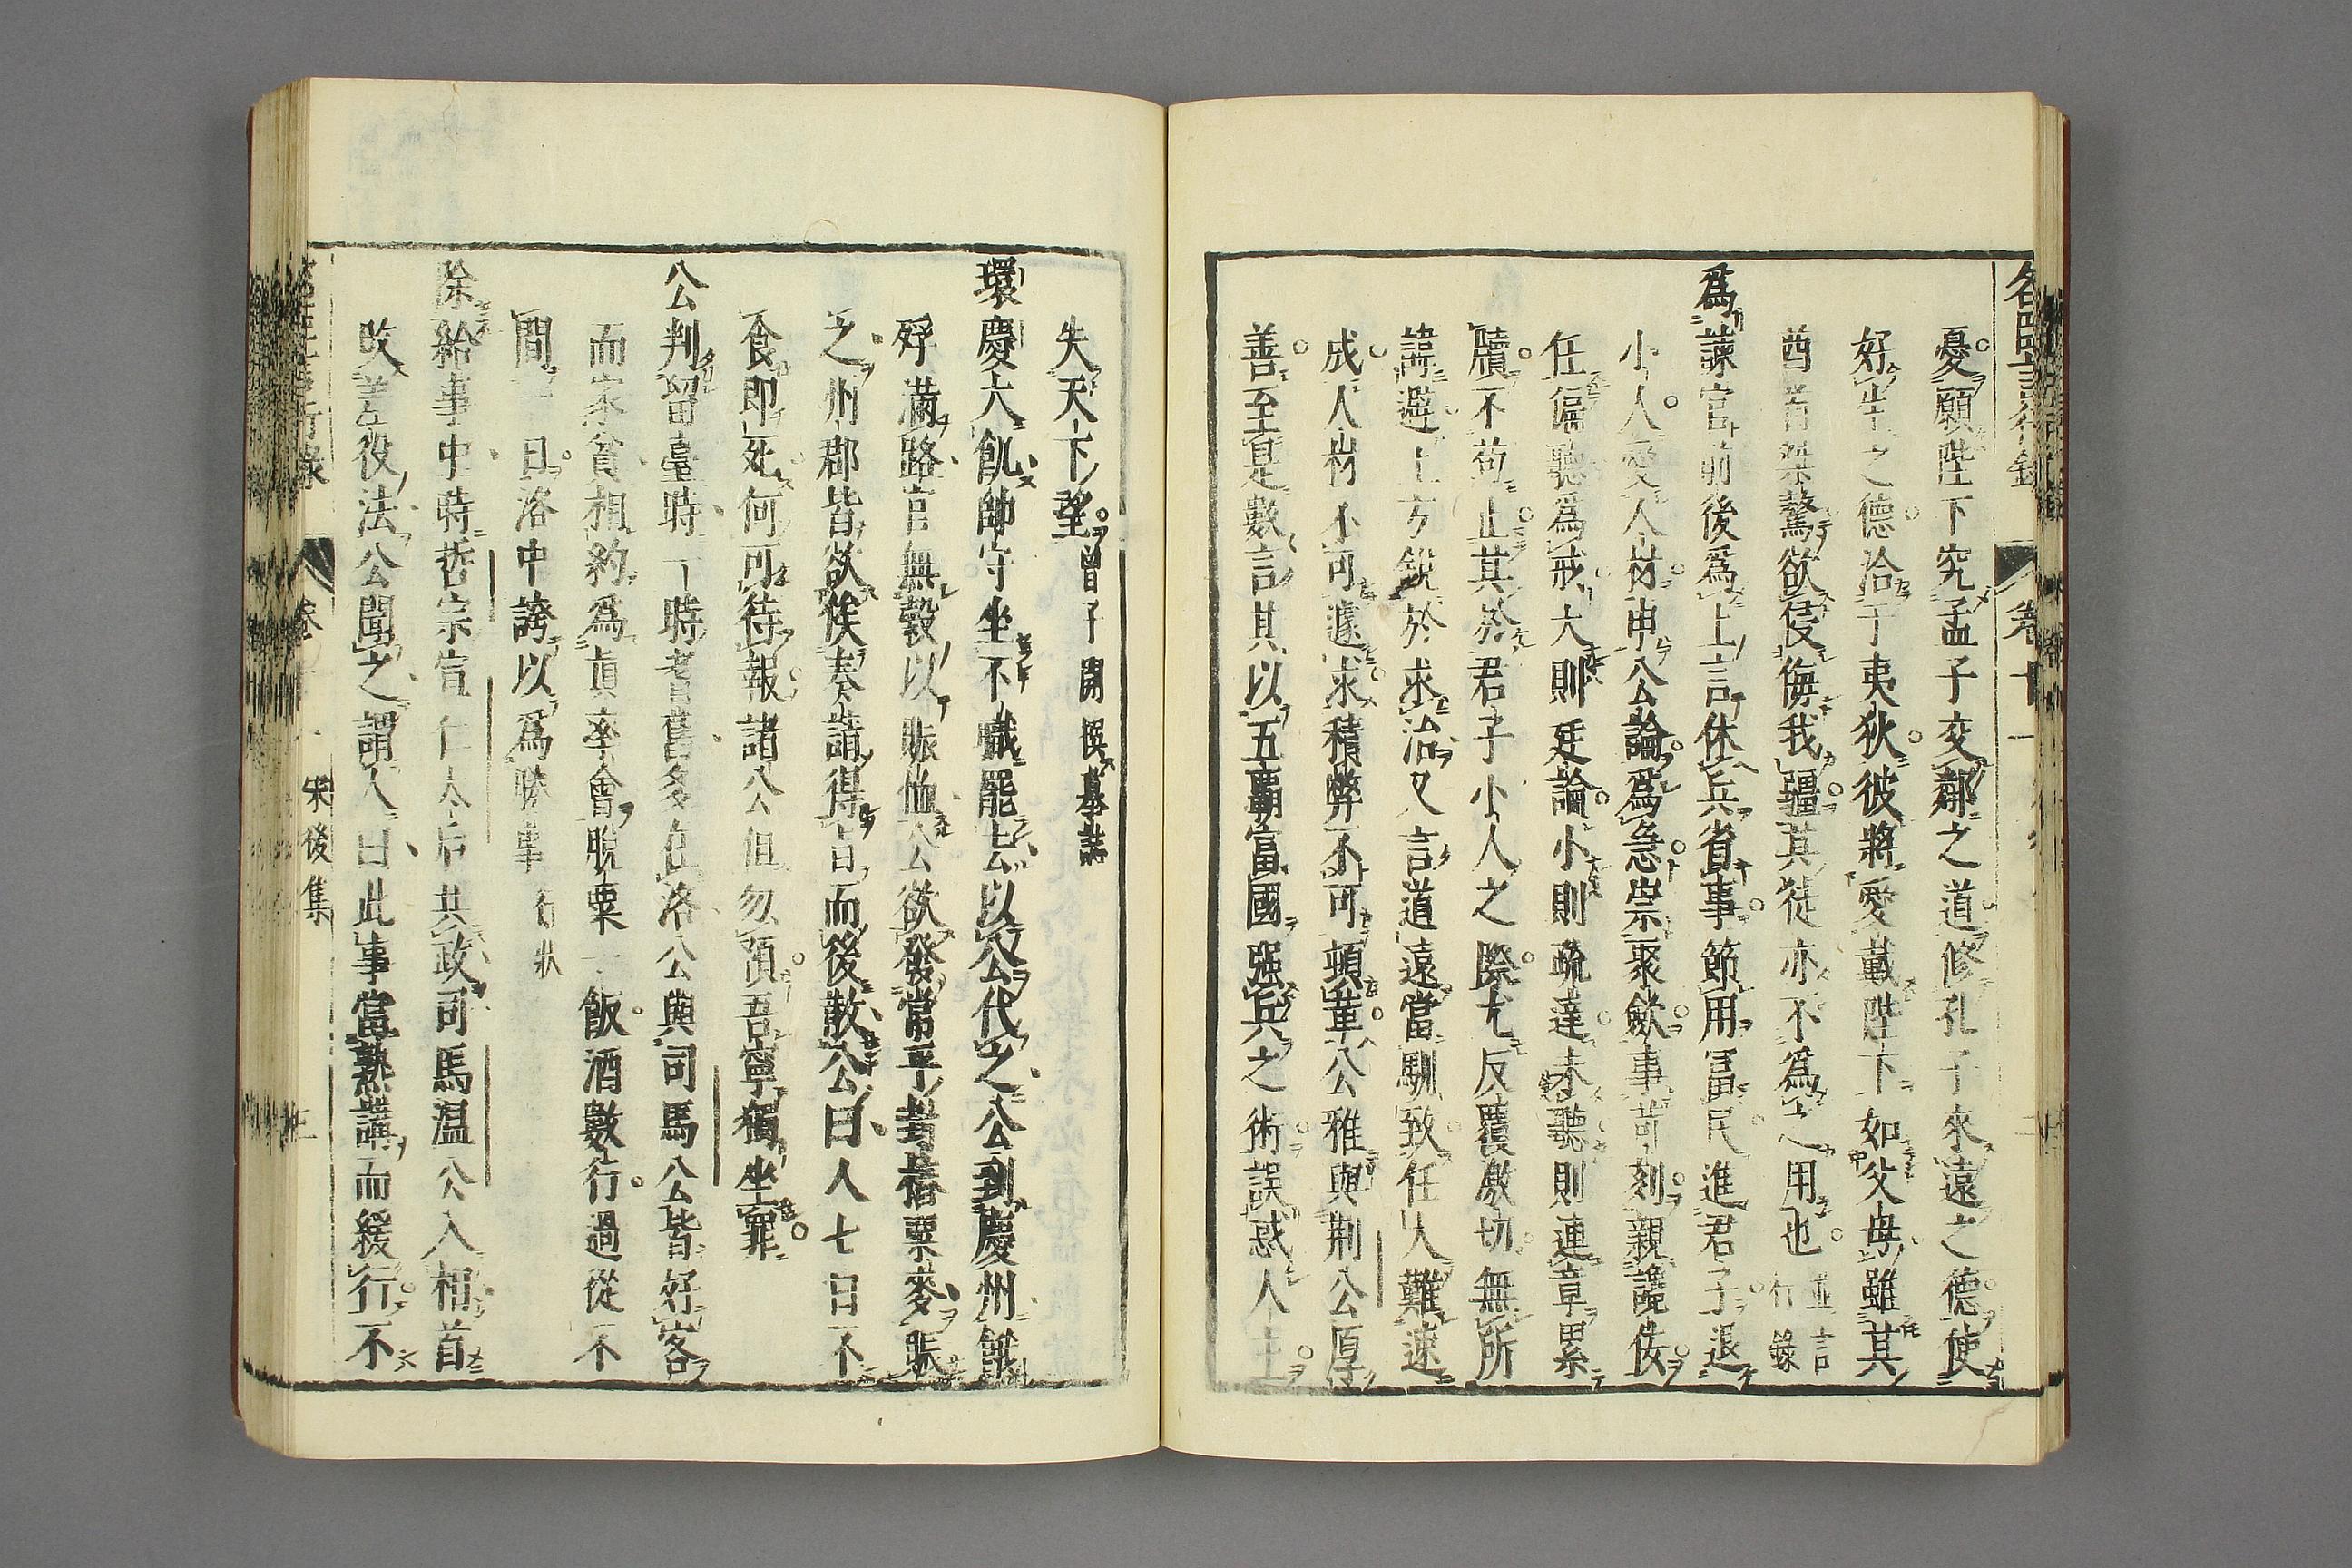 憂願陛下究孟子交鄰之道修孔子來遠之德使
好生之德洽于夷狄彼將愛戴陛下如父母雖其
酋首桀驁欲侵侮我疆其徒亦不為之用也並言行錄
爲諫官前後爲上言休兵省事節用富民進君子退
小人愛人材申公論爲急崇聚斂事苛刻親讒佞
任偏聽爲戒大則廷論小則疏達未聽則連章累
牘不苟止其於君子小人之際尤反覆激切無所
諱避上方銳於求治又言道遠當馴致任人難速
成人材不可遽求積弊不可頓革公雅與荆公厚
善至是數言其以五霸富國强兵之術誤惑人主
失天下望曾子開撰墓誌
環慶大飢帥守坐不職罷去以公代之公到慶州餓
殍滿路官無穀以賑恤公欲發常平封樁粟麥賑
之州郡皆欲俟奏請得旨而後散公曰人七日不
食即死何可待報諸公但勿預吾寧獨坐罪
公判留臺時一時耆舊多在洛公與司馬公皆好客
而家貧相約爲眞率會脫粟一飯酒數行過從不
間一日洛中誇以爲勝事行狀
除給事中時哲宗宣仁太后共政司馬温公入相首
改差役法公聞之謂人曰此事當熟講而緩行不
宋後集